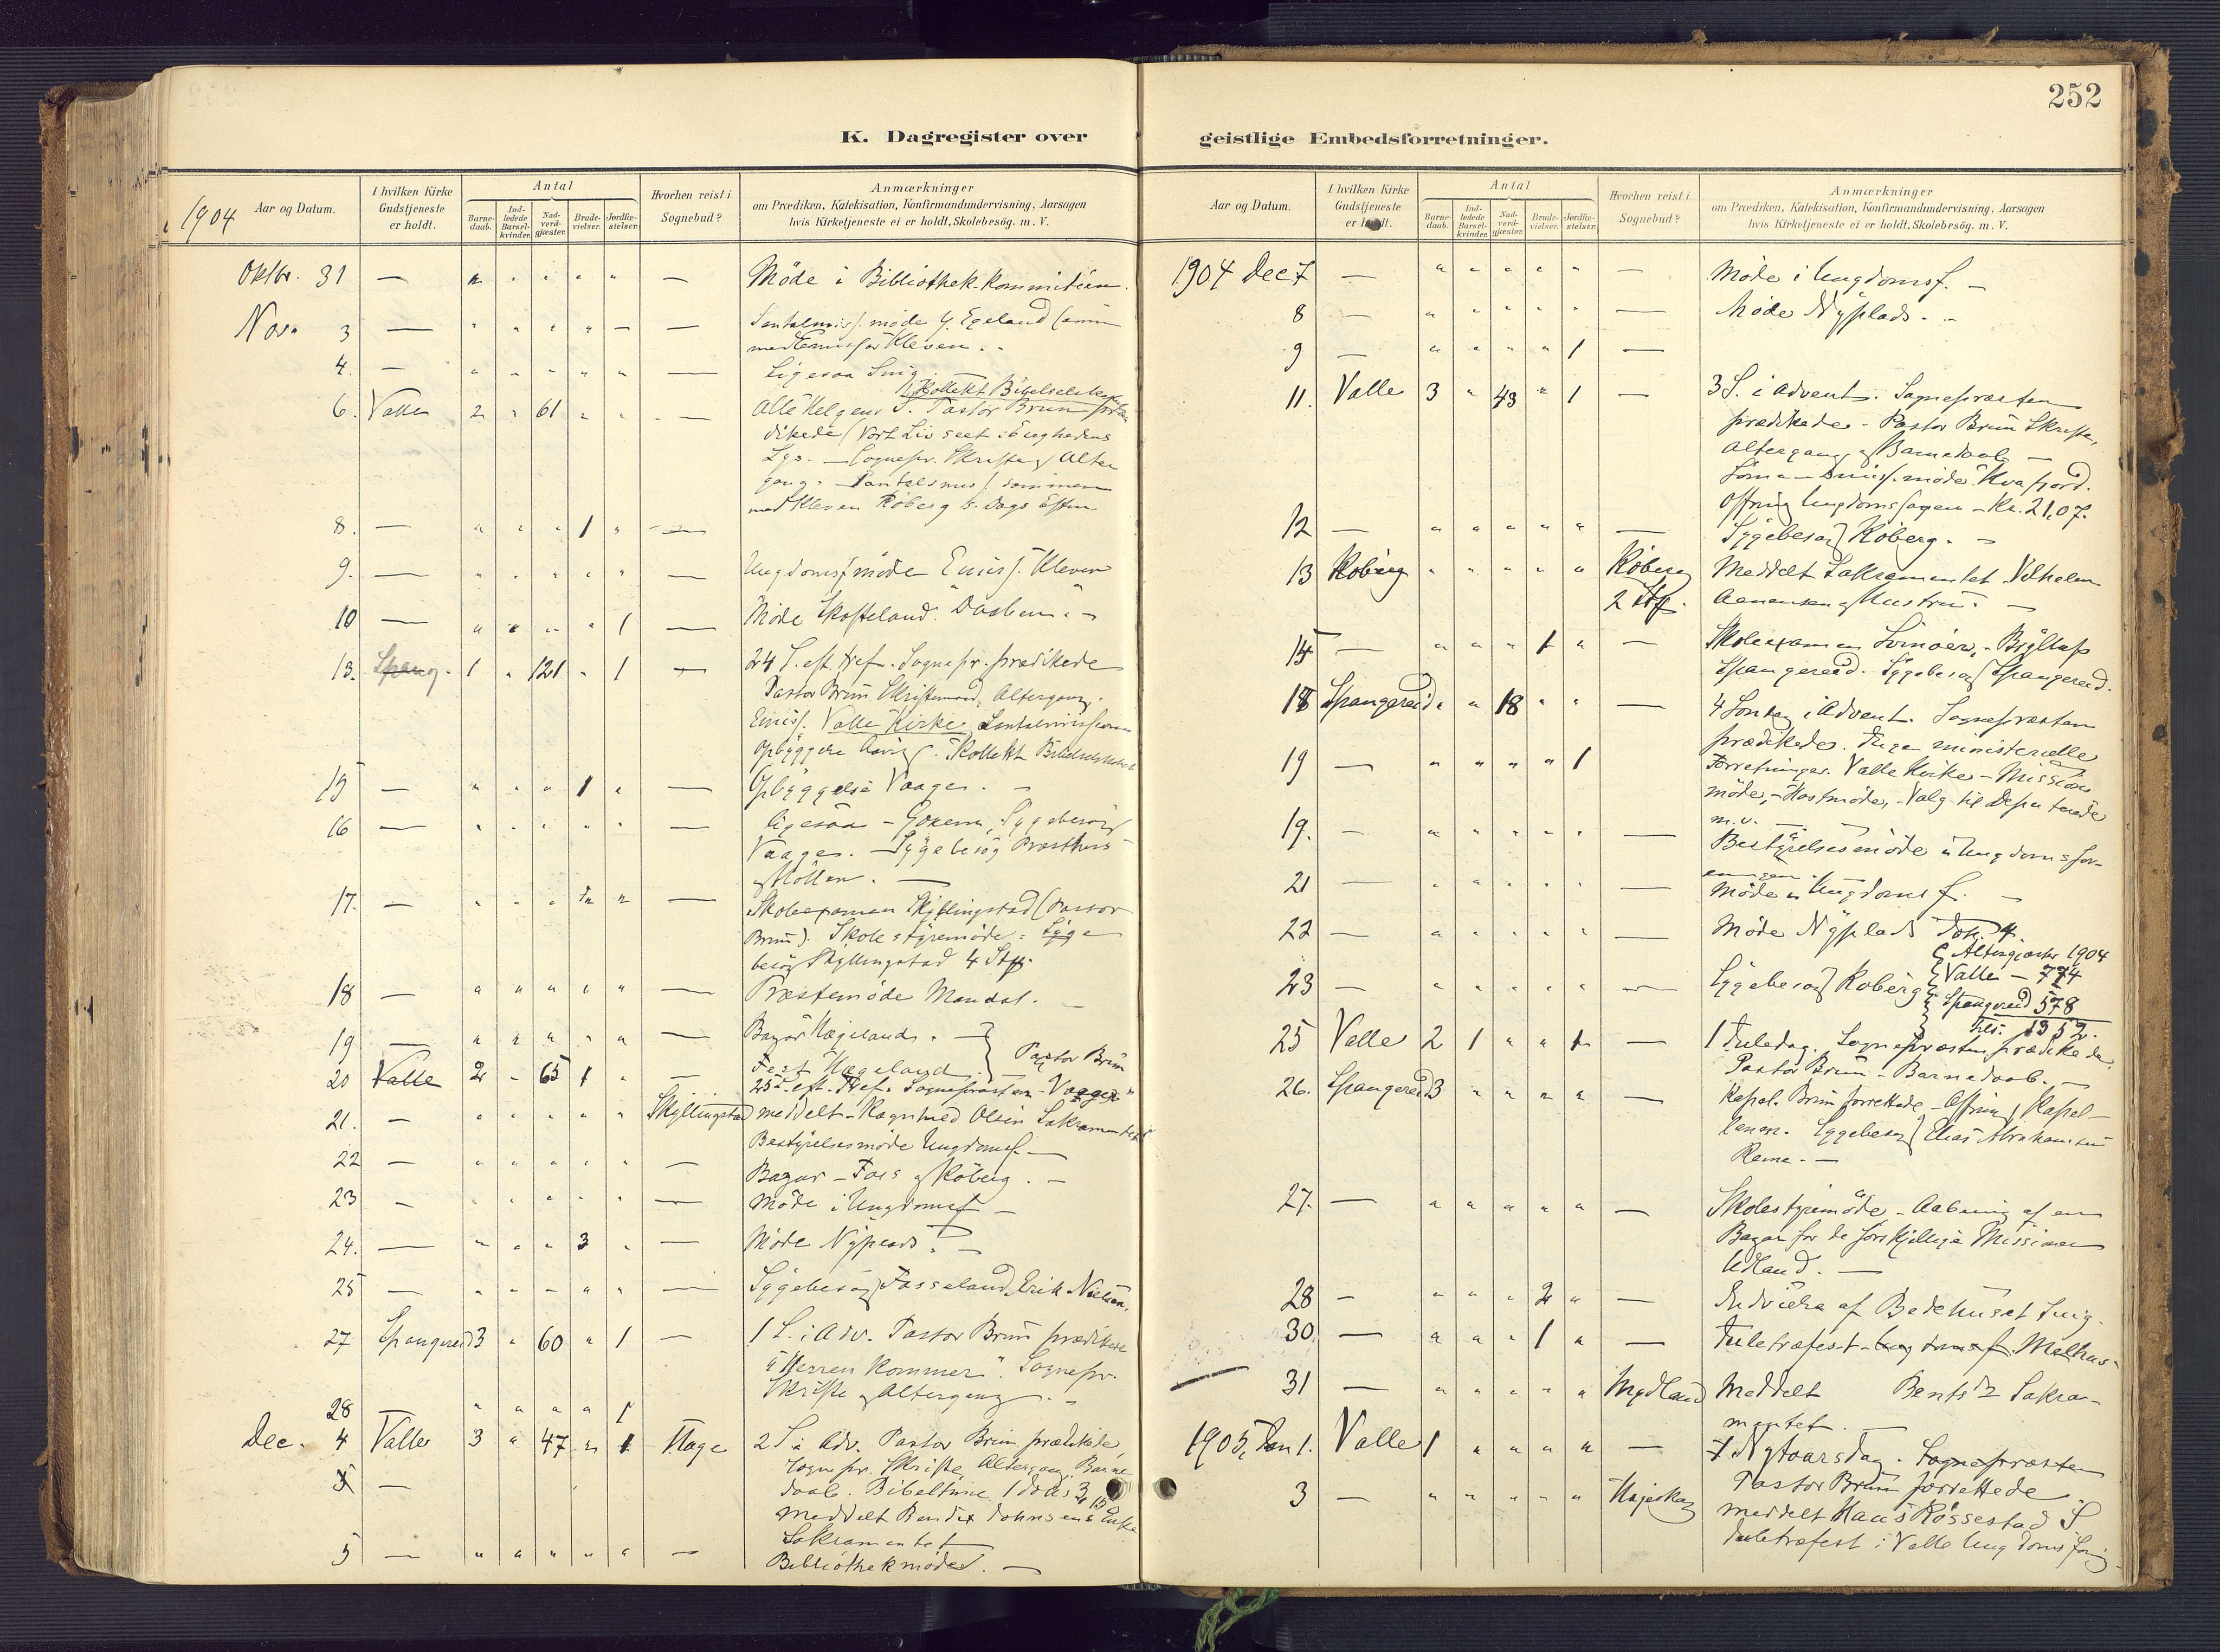 252
K. Dagregister over geistlige Embedsforretninger.
1904
Aar og Datum.
I hvilken Kirke Gudstjeneste er holdt.
Antal
Barnedaab.
Indledede Barselkvinder.
Nadverdgjæster.
Brudevielser.
Jordfæstelser.
Hvorhen reist i Sognebud?
Anmærkninger
om Prædiken, Katekisation, Konfirmandundervisning, Aarsagen
hvis Kirketjeneste ei er holdt, Skolebesög. m. V.
Oktbr. 31 — " " " " " — Möde i Bibliothek-kommitéen.
Nov. 3 — " " " " — — Santalmiss. möde Egeland
Kleven.
4. — " " " " " — Ligesaa
Kollekt Bibelselskabet
6. Valle 2 " 61 " " — Alle Helgens S. Pastor Brun præ-
dikede (Vort Liv seet i Evighedens
Lys. — Sognepr. Skrifte og Alter
gang. Santalsmiss. sammen
med Kleven Köberg s. Dags Eftm.
8. — " " " 1 " —
9. — " " " " " — Ungdomsf. möde Kleven
10 — " " " " 1 — Möde Skofteland.
13. Spang. 1 " 121 " 1 — 24 S. eft Tref. Sognepr. prædikede
Pastor Brun Altergang.
Valle Kirke
Kollekt
15 — " " " 1 " — Opbyggelse Vaage. —
16 — " " " " " — ligesaa — Sygebesög
Vaage. — Sygebesög
og Möllen. —
17. — " " " " — Skoleexamen Skjllingstad (Pastor
Brun). Skolestyremöde. Syge
besög Skyllingstad 4 Stk.
18 — " " " " " — Præstemöde Mandal. —
19 — " " " " " — Bazar Hægeland. —
Pastor Brun
20 Valle 2 " 65 1 " — Fest Hægeland. —
25 S. eft. Tref. Sognepræsten — Vaage
21. — " " " " " Skyllingstad meddelt Olsen Sakramentet
Bestyrelsesmöde Ungdomsf. —
22 — " " " " " — Bazar — Foss og Köberg. —
23 — " " " " " — Möde i Ungdomsf. —
24. — " " " 3 " — Möde Nyplads. —
25 — " " " " " — Sygebesög Fasseland, Erik Nielsen.
27 Spangereid 3 " 60 " 1 — 1 S. i Adv. Pastor Brun prædikede
"Herren kommer". Sognepr.
Skrifte og Altergang. —
28 — " " " " 1
Dec. 4 Valle 3 " 47 " 1 Hage 2 S i Adv. Pastor Brun prædikede,
Sognepr. Skrifte Altergang Barne
daab. Bibeltime
meddelt Bendix Johnsens Enke
Sakramentet
5 — " " " " " — Bibliothekmöde. —
Aar og Datum.
I hvilken Kirke Gudstjeneste er holdt.
Antal
Barnedaab.
Indledede Barselkvinder.
Nadverdgjæster.
Brudevielser.
Jordfæstelser.
Hvorhen reist i Sognebud?
Anmærkninger
om Prædiken, Katekisation, Konfirmandundervisning, Aarsagen
hvis Kirketjeneste ei er holdt, Skolebesög. m. V.
1904 Dec 7 — " " " " " — Möde i Ungdomsf. —
8 — " " " " " — Möde Nyplads. —
9 — " " " " 1 —
11. Valle 3 " 43 " 1 — 3 S. i Advent. Sognepræsten
prædikede. Pastor Brun Skrifte,
Altergang og Barnedaab —
möde Kvafjord.
Offring Ungdomssagen — Kr. 21,07.
12 — " " " " " — Sygebesög Köberg. —
13 Köberg " " " " " Köberg Meddelt Sakramentet Vilhelm
2 Stk. Aanensen og Hustru. —
15 — " " " 1 " — Skoleexamen Svinöer, — Bryllup
Spangereid. Sygebesög Spangereid.
18 Spangereid " " 18 " " — 4 Söndag i Advent. Sognepræsten
prædikede. Ingen ministerielle
19 — " " " " 1 Forretninger. Valle Kirke — Missions
möde, — Höstmöde, — Valg til Deputerede
m.v. —
19. — " " " " " — Bestyrelsesmöde i Ungdomsfor-
eningen.
21 — " " " " " — Möde i Ungdoms f. —
22 — " " " " " — Möde Nyplads
Altergjæster 1904
23 — " " " " " — Sygebesög Köberg Valle — 774
Spangereid 578
1352.
25 Valle 2 1 " " 1 — 1 Juledag. Sognepræsten prædikede.
Pastor Brun — Barnedaab. —
26. Spangereid 3 " " " " — Kapel. Brun forrettede — Offring Kapel-
lanen. Sygebesög Elias Abrahamsen
Reme. —
27. — " " " " " — Skolestyremöde — Aabning af en
Bazar for de forskjellige Missioner
Udland. —
28 — " " " 2 " — Indvielse af Bedehuset
30 — " " " 1 " — Juletræfest — Ungdomsf. Melhus.
31 — " " " " " Mydland Meddelt Bents Sakra-
mentet. —
1905, Jan 1. Valle 1 " " " " — Nytaarsdag. Sognepræsten
Pastor Brun forrettede
3 — " " " " " Hageskog meddelt Hans Rössestad S
Juletræfest i Valle Ungdoms